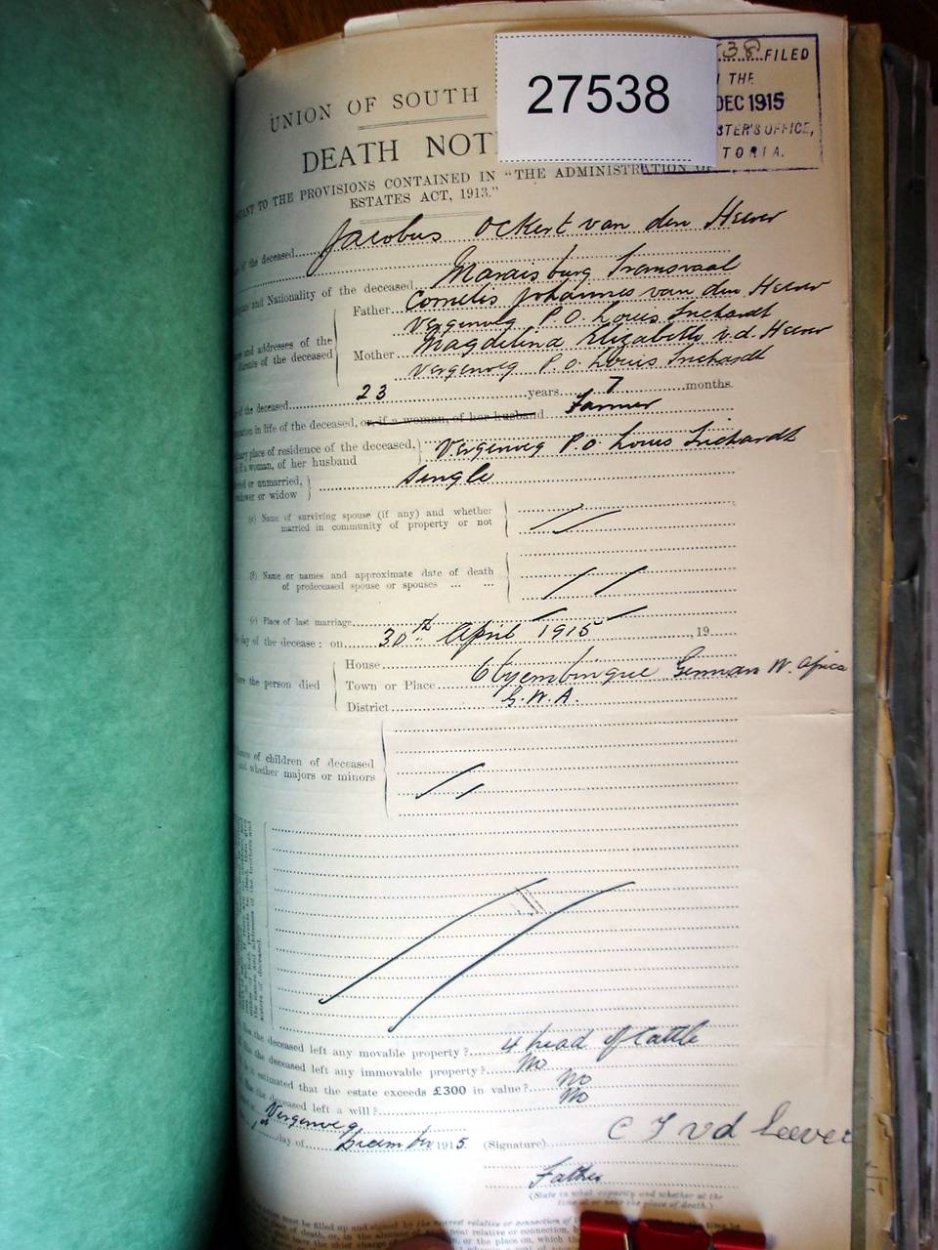 27538
538 FILED
THE
DEC 1915
STER'S OFFICE,
TORIA.
UNION OF SOUTH
DEATH NOT
TO THE PROVISIONS CONTAINED IN "THE ADMINISTRATION OF
ESTATES ACT, 1913."
of the deceased Jacobus Ockert van den Heever
and Nationality of the deceased Maraisburg Transvaal
Father Cornelis Johannes van den Heever
Vergenoeg P.O. Louis Trichardt
and addresses of the
of the deceased
Mother Magdelina Elizabeth v.d. Heever
Vergenoeg P.O. Louis Trichardt
of the deceased 23 years 7 months.
in life of the deceased, or if a woman, of her husband Farmer
place of residence of the deceased, Vergenoeg P.O Louis Trichardt
if a woman, of her husband
or unmarried, Single
or widow
(a) Name of surviving spouse (if any) and whether
married in community of property or not
(b) Name or names and approximate date of death
of predeceased spouse or spouses ... ...
(c) Place of last marriage
day of the decease: on 30th April 1915, 19
House
the person died Town or Place German W. Africa
District G.W.A.
of children of deceased
whether majors or minors
the deceased left any movable property? 4 head of Cattle
the deceased left any immovable property? No
estimated that the estate exceeds £300 in value? No
deceased left a will? No
Vergenoeg
1st day of December 1915 (Signature) C J v d heever
Father
(State in what capacity and whether at the
time at or near the place of death.)
must be filled up and signed by the nearest relative or connection of